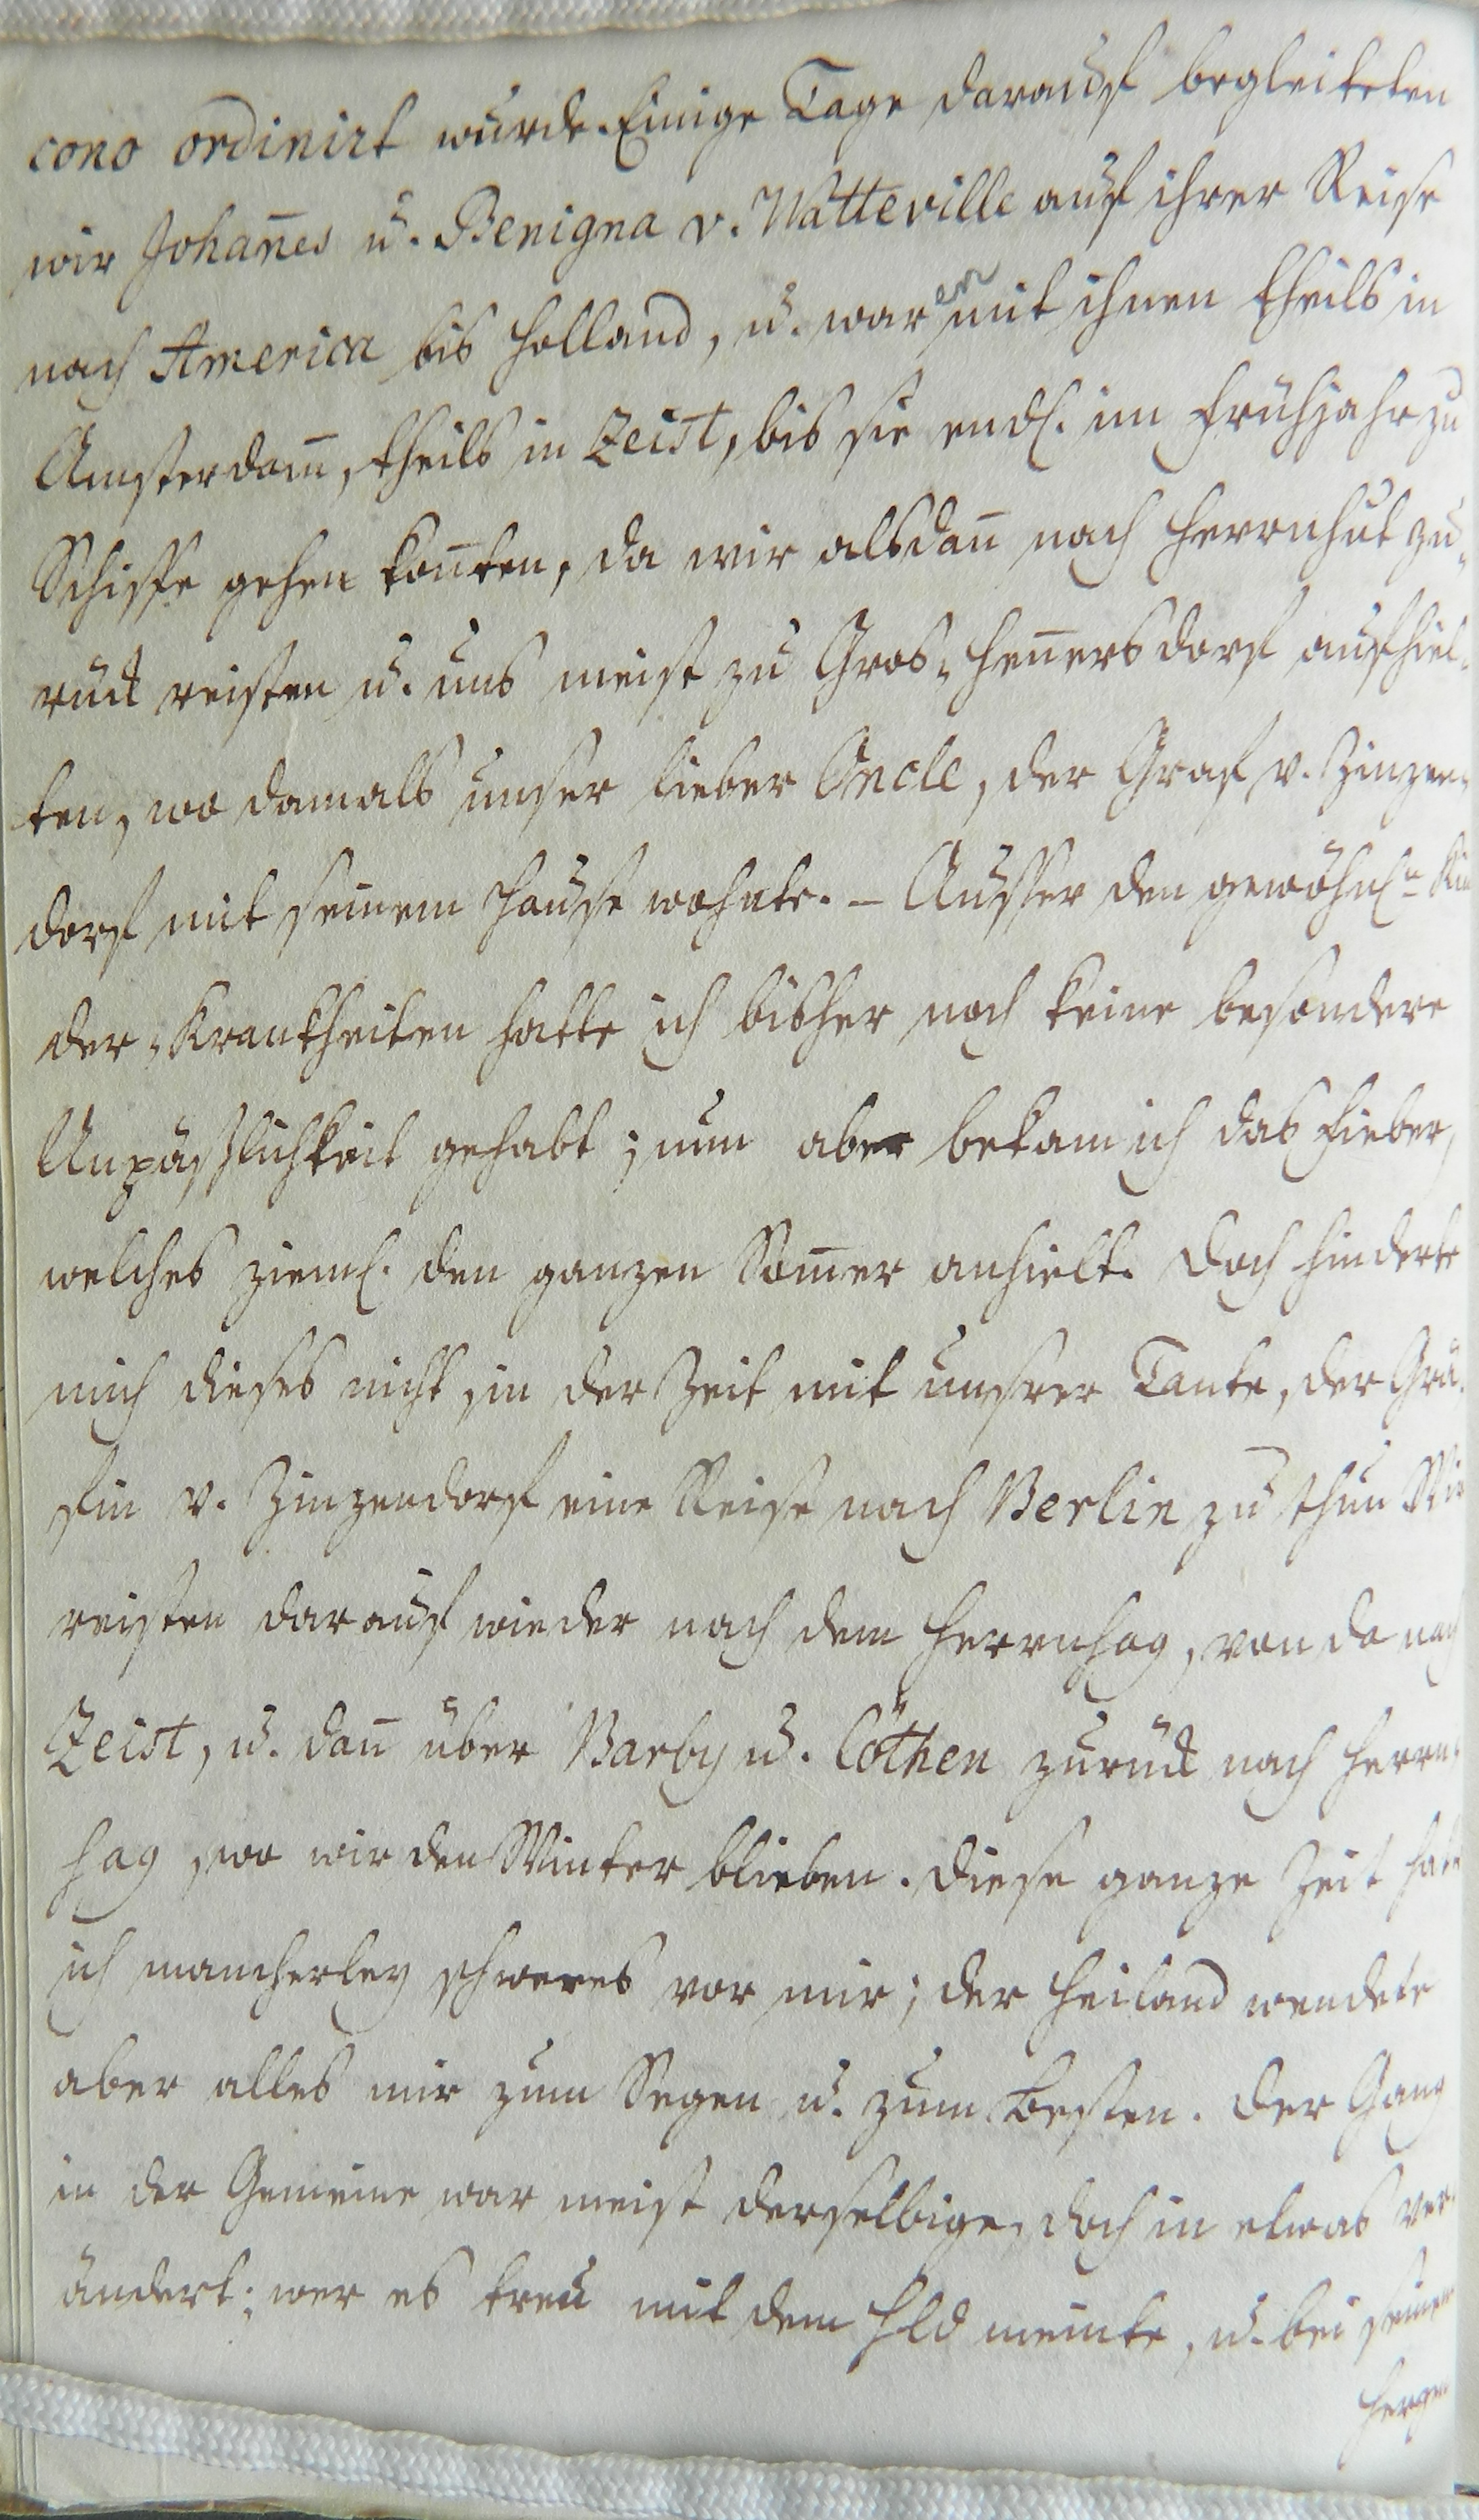 cono ordinirt wurde. Einige Tage darauf begleiteten
wir Johan̄es u. Benigna v. Watteville auf ihrer Reise
nach America bis Holland, u. waren mit ihnen theils in
Amsterdam̄, theils in Zeist, bis sie endl. im Frühjahr zu
Schiffe gehen kon̄ten, da wir alsdan̄ nach Herrnhut zu-
rück reisten u. uns meist zu Gros-Hen̄ersdorf aufhiel-
ten, wo damals unser lieber Oncle, der Graf v. Zinzen-
dorf mit seinem Hause wohnte. – Ausser den gewöhnln Kin
der-Krankheiten hatte ich bisher noch keine besondere
Unpäßlichkeit gehabt; nun aber bekam ich das Fieber,
welches zieml. den ganzen Som̄er anhielt. Doch hinderte
mich dieses nicht, in der Zeit mit unsrer Tante, der Grä-
fin v. Zinzendorf eine Reise nach Berlin zu thun. Wir
reisten darauf wieder nach dem Herrnhag, von da nach
Zeist, u. dan̄ über Barby u. Cöthen zurück nach Herrn-
hag, wo wir den Winter blieben. Diese ganze Zeit hatte
ich mancherley schweres vor mir; der Heiland wendete
aber alles mir zum Segen u. zum Besten. Der Gang
in der Gemeine war meist derselbige, doch in etwas ver-
ändert; wer es treu mit dem Hld meinte, u. bei seinem
Herzen